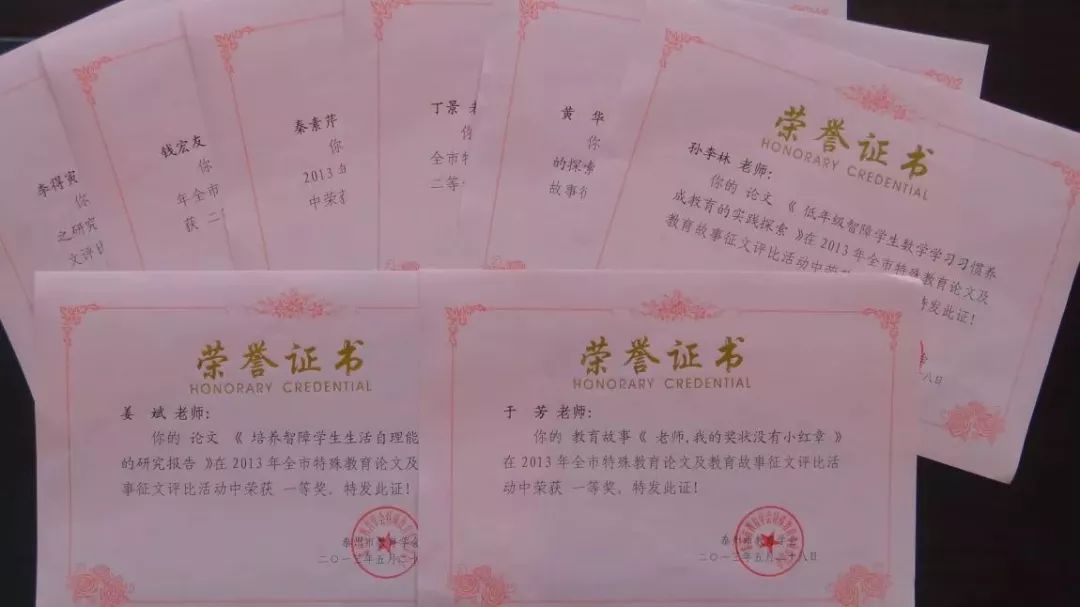 李得寅
你
之研究
文评
钱宏友
你
年全市
获 二
秦素芹
你
2013
中荣
丁景
全市特
二等
黄 华
你
的探索
故事征
荣誉证书
HONORARY CREDENTIAL
孙李林 老师：
你的 论文 《 低年级智障学生数学学习习惯养
成教育的实践探索 》在 2013 年全市特殊教育论文及
教育故事征文评比活动中荣
特发此证！
八日
荣誉证书
HONORARY CREDENTIAL
姜 斌 老师：
你的 论文 《 培养智障学生生活自理能
的研究报告 》在 2013 年全市特殊教育论文及
事征文评比活动中荣获 一等奖，特发此证！
二〇一三年五月二十
荣誉证书
HONORARY CREDENTIAL
于 芳 老师：
你的 教育故事《 老师，我的奖状没有小红章 》
在 2013 年全市特殊教育论文及教育故事征文评比活
动中荣获 一等奖，特发此证！
二〇一三年五月二十八日